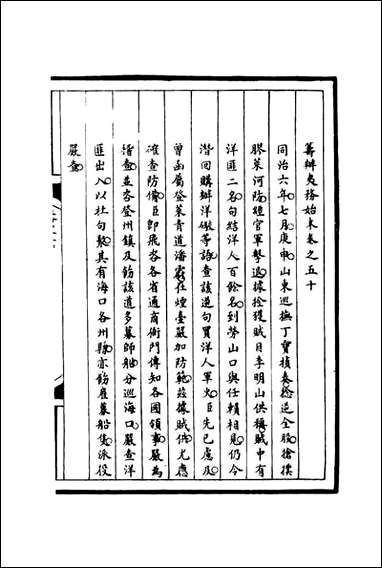 籌辦夷務始末卷之五十
同治六年七月庚申山東巡撫丁寶楨奏捻逆全股搶撲
膠萊河防經官軍擊退據捻獲賊目李明山供稱賊中有
洋匪二名句結洋人百餘名到勞山口與任賴相見仍令
潛回購辦洋礮等語查該逆句買洋人軍火臣先已慮及
曾函屬登萊青道潘霨在煙臺嚴加防範茲據賊供尤應
確查防備臣即飛咨各省通商衙門傳知各國領事嚴為
稽查並咨登州鎮及飭該道多募師船分巡海口嚴查洋
匪出入以杜句聚其有海口各州縣亦飭雇募船隻派役
嚴查